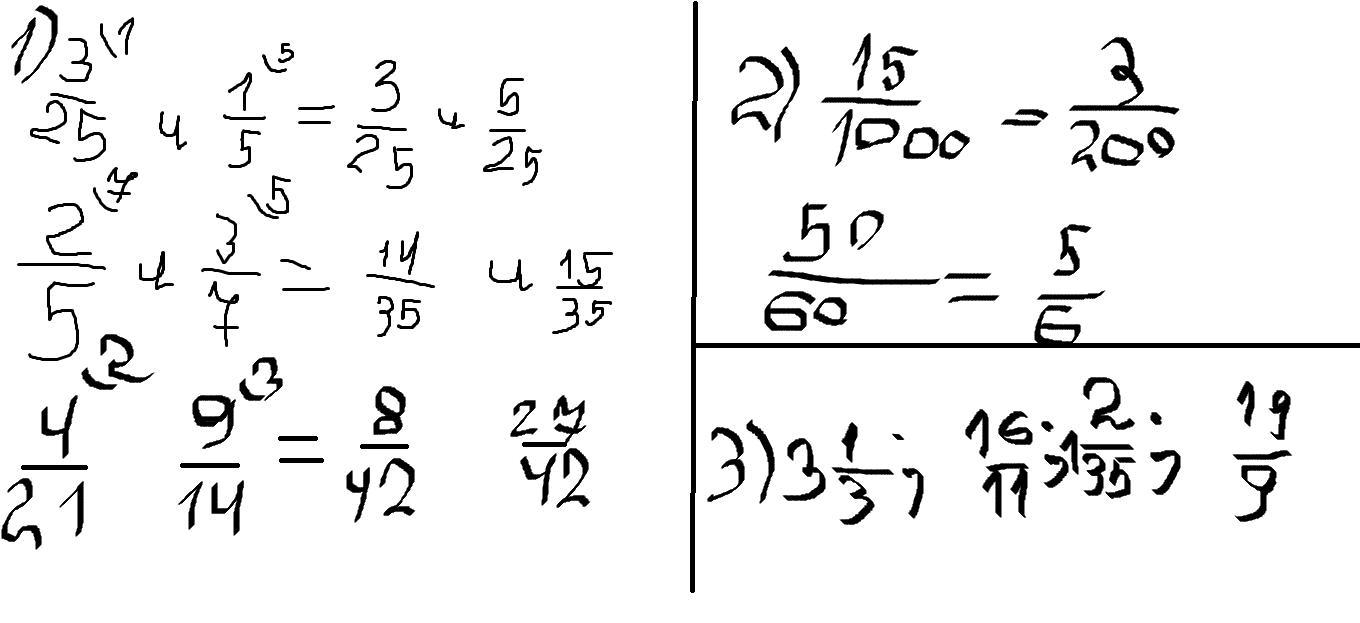 1) 3\1/25 и 1\5/5 = 3/25 и 5/25
2\7/5 и 3\5/7 = 14/35 и 15/35
4\2/21 9\3/14 = 8/42 27/42
2) 15/1000 = 3/200
50/60 = 5/6
3) 3 1/3; 16/11; 1 2/35; 19/9